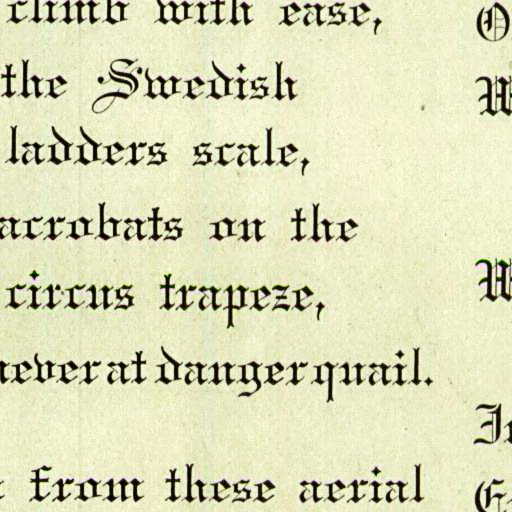 climb with ease,
the Swedish
ladders scale,
acrobats on the
circus trapeze,
never at danger quail.
from these aerial